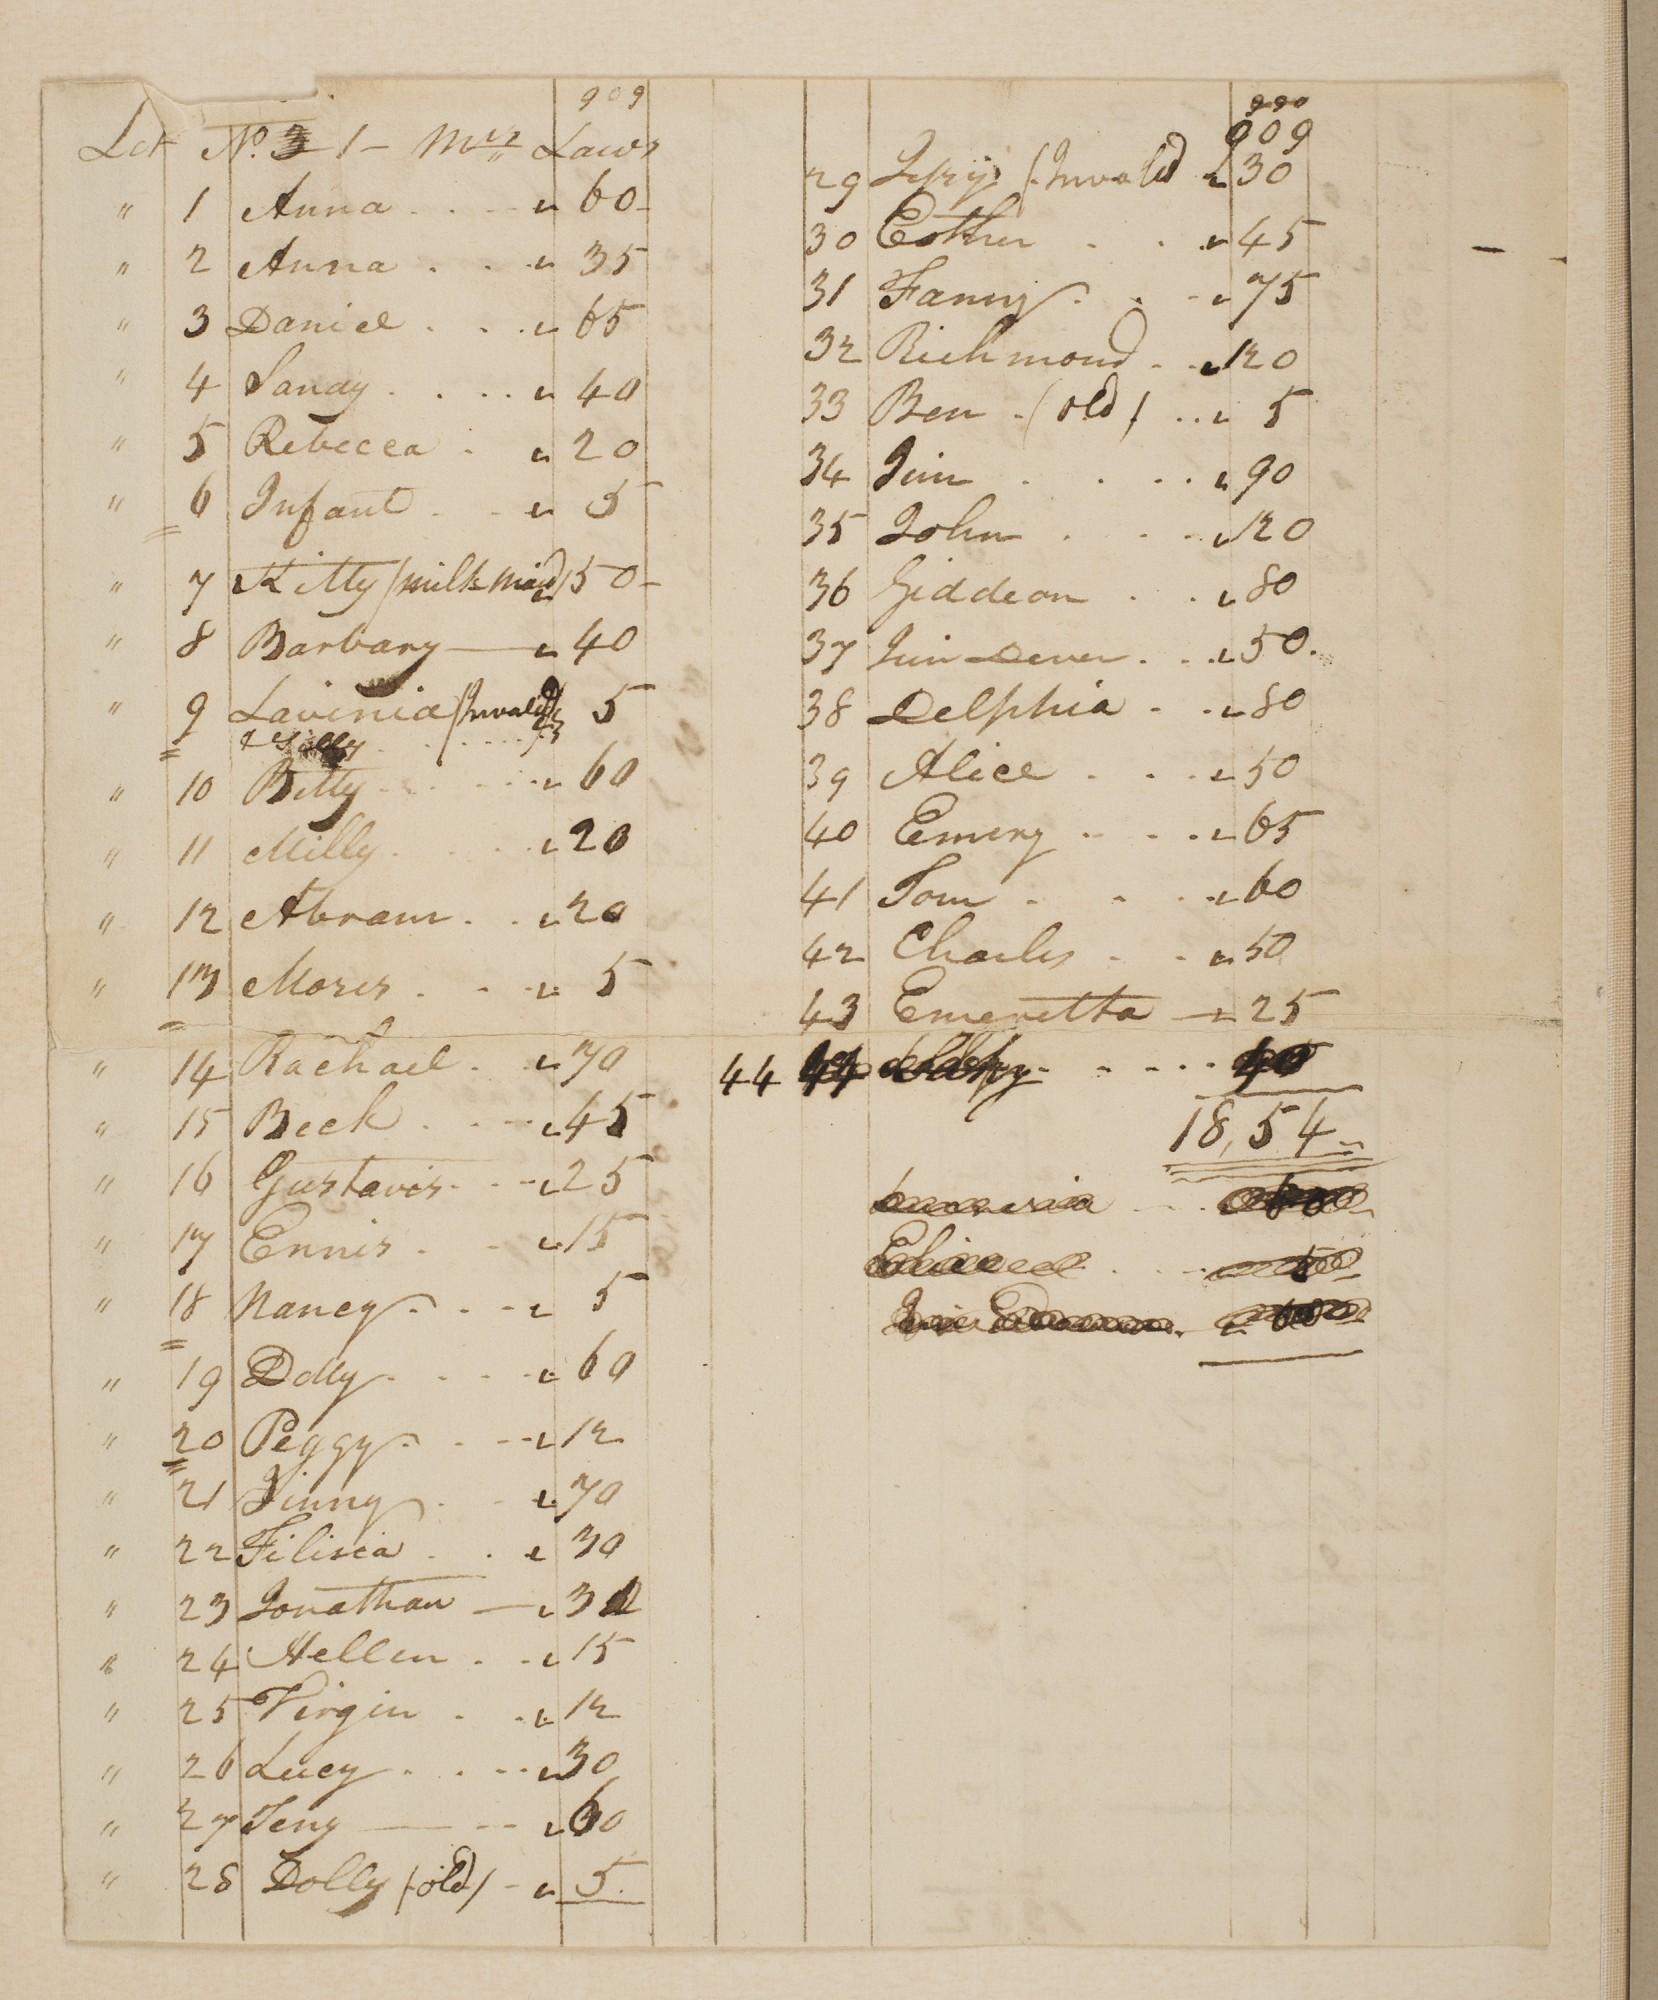 909
Lot No. 1 - Mrs Laws
" 1 Anna . . . " 60
" 2 Anna . . . " 35
" 3 Daniel . . . " 65
" 4 Sandy . . . . " 40
" 5 Rebecca . " 20
" 6 Infant . . " 5
" 7 Kitty (milk maid) " 50
" 8 Barbary — " 40
" 9 Lavinia (Invalid) 5
" 10 Betty . . . . " 60
" 11 Milly . . . . " 20
" 12 Abram . . " 20
" 13 Moses . . . " 5
" 14 Rachael . . " 70
" 15 Beck . . . . " 45
" 16 Gustavis . . . " 25
" 17 Ennis . . " 15
" 18 Nancy . . . " 5
" 19 Dolly . . . . " 60
" 20 Peggy . . . " 12
" 21 Jinny . . " 70
" 22 Filisia . . " 30
" 23 Jonathan — " 32
" 24 Hellen . . " 15
" 25 Virgin . . " 12
" 26 Lucy . . . . " 30
" 27 Teny — - - " 60
" 28 Dolly (old) - " 5.
909
29 (Invalid " 30
30 Esther . . " 45
31 Fanny . . . " 75
32 Richmond . . " 120
33 Ben . (old) . . " 5
34 Jim . . . . " 90
35 John . . . " 120
36 Giddeon . . " 80
37 Jim Dever . . . " 50.
38 Delphia . . " 80
39 Alice . . . " 50
40 Emery . . . . " 65
41 Tom . . . . " 60
42 Charles . . " 50
43 Emeretta — " 25
44
18,54